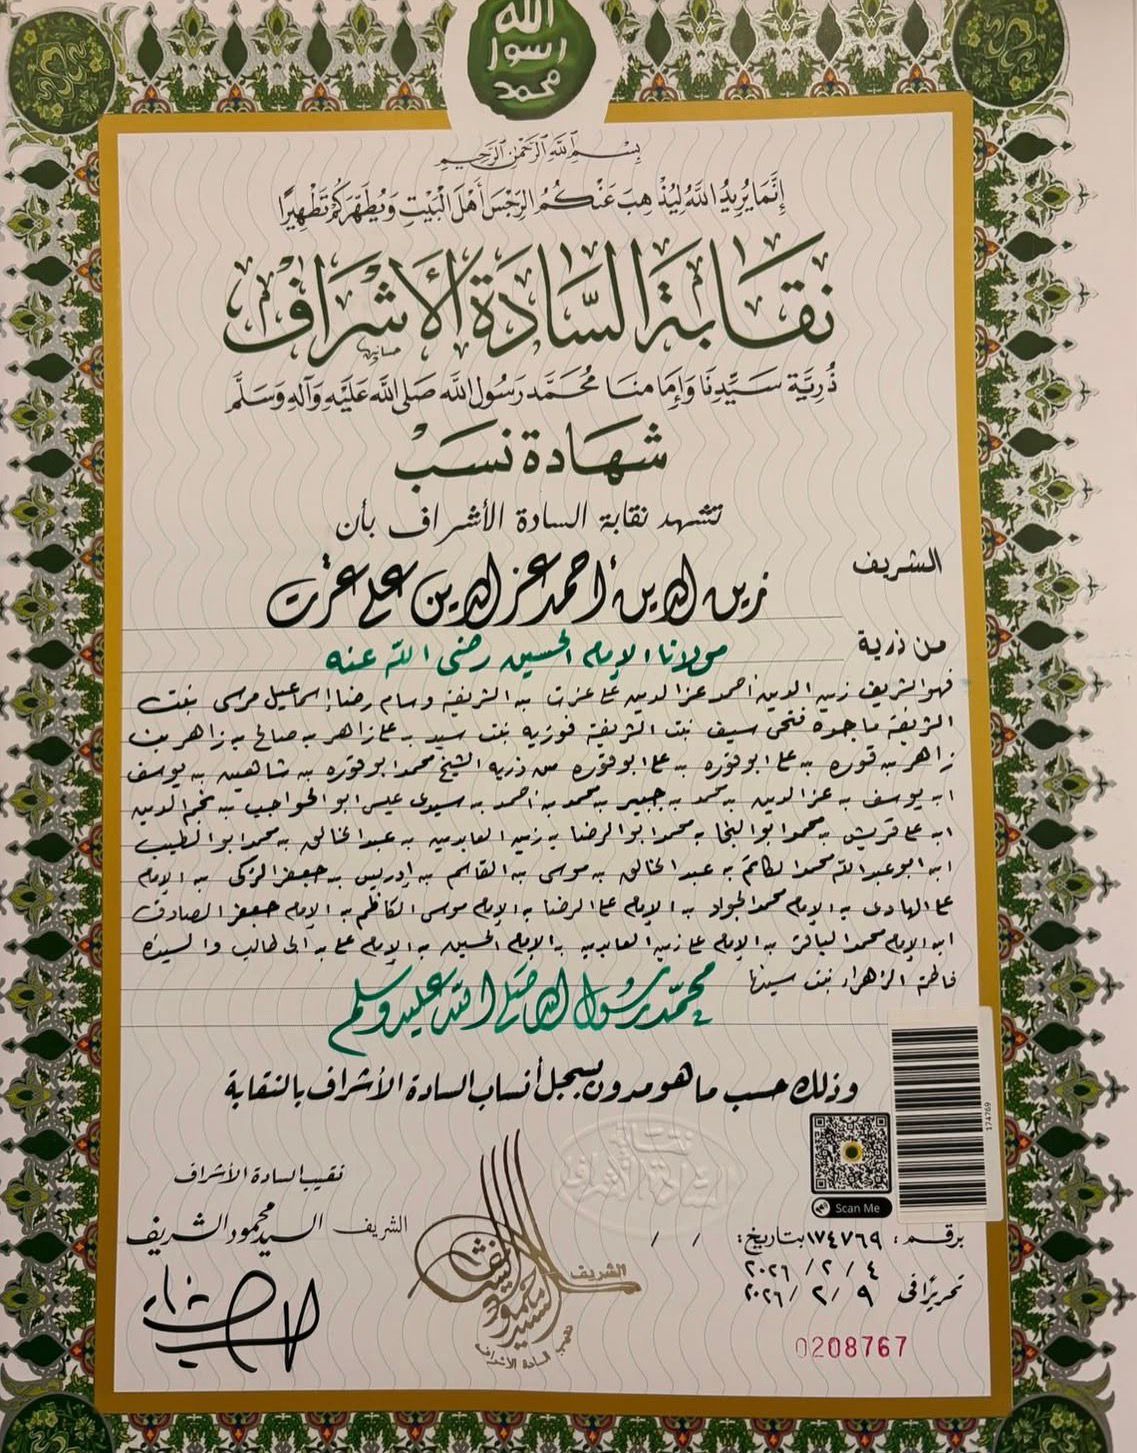 الله
رسول
محمد
بِسْمِ اللهِ الرَّحْمٰنِ الرَّحِيمِ
إِنَّمَا يُرِيدُ اللهُ لِيُذْهِبَ عَنْكُمُ الرِّجْسَ أَهْلَ الْبَيْتِ وَيُطَهِّرَكُمْ تَطْهِيرًا
نقابة السادة الأشراف
ذُرِّيَّة سَيِّدِنَا وَإِمَامِنَا مُحَمَّد رَسُول الله صَلَى الله عَلَيْهِ وَآلِهِ وَسَلَّم
شهادة نسب
تشهد نقابة السادة الأشراف بأن
الشريف
زين الدين أحمد عز الدين على عزت
من ذرية
مولانا الإمام الحسين رضى الله عنه
فهو الشريف زين الدين أحمد عز الدين على عزت بن الشريفة وسام رضا إسماعيل مرسى بنت
الشريفة ماجده فتحى سيف بنت الشريفة فوزيه بنت سيد بن على زاهر بن صالح بن زاهر بن
زاهر بن قوره بن على ابو قوره بن على ابو قوره من ذرية الشيخ محمد ابو قوره بن شاهين بن يوسف
ابن يوسف بن عز الدين بن محمد بن جبير بن محمد بن أحمد بن سيدى عيسى ابو الحواجب بن نجم الدين
ابن على قريش بن محمد ابو النجا بن محمد ابو الرضا بن زين العابدين بن عبد الخالق بن محمد ابو الطيب
ابن ابو عبد الله محمد الكاتم بن عبد الخالق بن موسى بن القاسم بن إدريس بن جعفر الزكى بن الإمام
على الهادى بن الإمام محمد الجواد بن الإمام على الرضا بن الإمام موسى الكاظم بن الإمام جعفر الصادق
ابن الإمام محمد الباقر بن الإمام على زين العابدين بن الإمام الحسين بن الإمام على بن ابى طالب والسيدة
فاطمة الزهراء بنت سيدنا محمد رسول الله صلى الله عليه وسلم
وذلك حسب ما هو مدون بسجل أنساب السادة الأشراف بالنقابة
نقابة
السادة الأشراف
174769
Scan Me
نقيب السادة الأشراف
الشريف السيد محمود الشريف
الشريف
نقيب السادة الأشراف
برقم: ١٧٤٧٦٩ بتاريخ: / /
٤ / ٢ / ٢٠٢٦
تحريرًا فى ٩ / ٢ / ٢٠٢٦
0208767